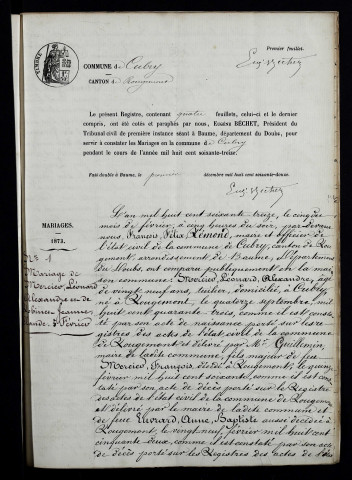 Premier feuillet.
TIMBRE
COMMUNE de Cubry
CANTON de Rougemont
Eug. Béchet
Le présent Registre, contenant quatre feuillets, celui-ci et le dernier
compris, ont été cotés et paraphés par nous, Eugène BÉCHET, Président du
Tribunal civil de première instance séant à Baume, département du Doubs, pour
servir à constater les Mariages en la commune de Cubry
pendant le cours de l'année mil huit cent soixante-treize.
Fait double à Baume, le premier décembre mil huit cent soixante-douze.
Eug. Béchet
MARIAGES.
1873.
N° 1
Mariage de
Mercier, Léonard
Alexandre et de
Jeanne
février
L'an mil huit cent soixante treize, le cinq du
mois de février, à cinq heures du soir, par devant
nous, François, Félix, maire et officier de
l'état civil de la commune de Cubry, canton de Rou-
gemont, arrondissement de Baume, Département
du Doubs, ont comparu publiquement en la mai-
son commune: Mercier, Léonard, Alexandre, âgé
de vingt neuf ans, domicilié à Cubry,
né à Rougemont, le quatorze septembre, mil
huit cent quarante trois, comme il est consta-
té par son acte de naissance porté sur les re-
gistres des actes de l'état civil de la commune
de Rougemont et délivré par Mr Guillemin,
maire de ladite commune, fils majeur de feu
Mercier, François, décédé à Rougemont, le quinze
février mil huit cent soixante, comme il est cons-
taté par son acte de décès porté sur le Registre
des actes de l'état civil de la commune de Rouge-
mont et délivré par le maire de ladite commune et
de feue Euvrard, Anne, Baptiste aussi décédée à
Rougemont, le vingt neuf février mil huit cent
cinquante deux, comme il est constaté par son acte
de décès porté sur les Registres des actes de l'état